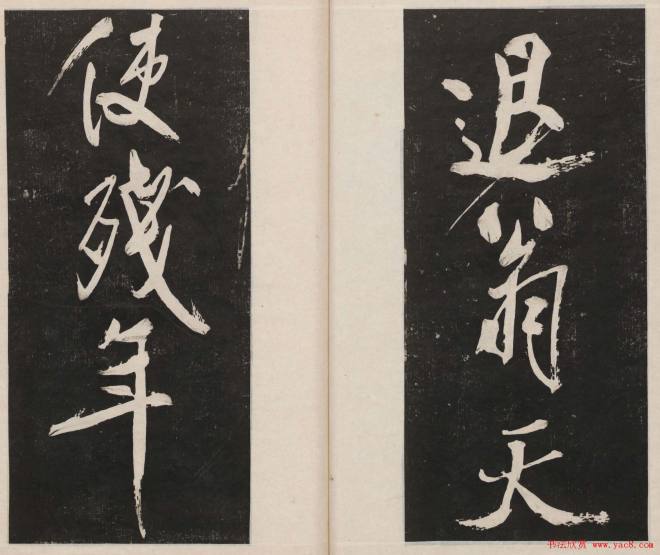 退翁天
使殘年
书法欣赏 www.yac8.com